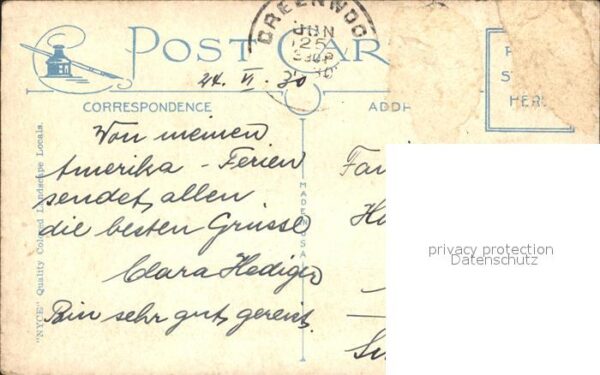 POST CAR
GREENWOO
JUN
25
24. VI. 30
CORRESPONDENCE
ADD
HERE
Von meinen
Amerika - Ferien
sendet allen
die besten Grüsse
Clara Hediger
Bin sehr gut gereist.
"NYCE" Quality Colored Landscape Locals.
MADE IN U.S.A.
privacy protection
Datenschutz